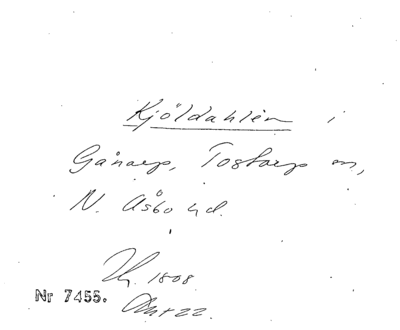 Kjöldahlen i
Gånarp, Tostarp m,
N. Åsbo hd.
1808
Nr 7455.
22.